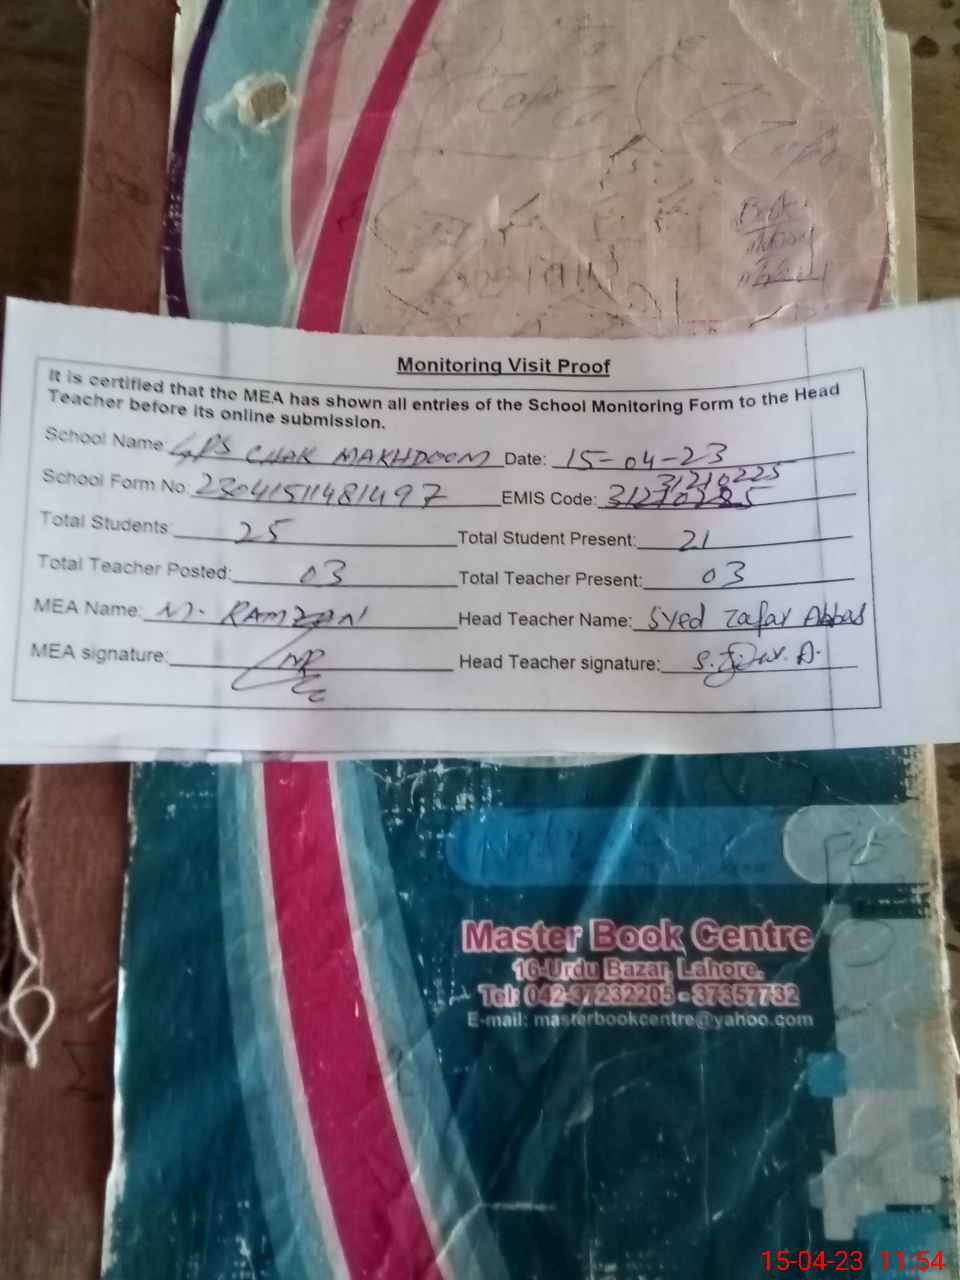 Monitoring Visit Proof
It is certified that the MEA has shown all entries of the School Monitoring Form to the Head
Teacher before its online submission.
School Name: GPS CHAK MAKHDOOM Date: 15-04-23
31210225
School Form No: 23041511481497 EMIS Code:
Total Students: 25 Total Student Present: 21
Total Teacher Posted: 03 Total Teacher Present: 03
MEA Name: M. RAMZAN Head Teacher Name: Syed Zafar Abbas
MEA signature: Head Teacher signature:
Master Book Centre
16-Urdu Bazar, Lahore.
Tel: 042-37232205 - 37357732
E-mail: masterbookcentre@yahoo.com
15-04-23 11:54